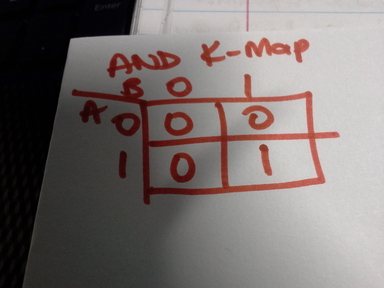 AND K-Map
B 0 1
A 0 0 0
1 0 1